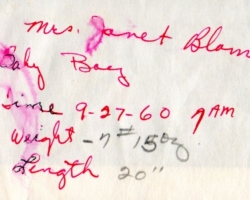 Mrs. Janet Blam
Baby Boy
Time 9-27-60 7 AM
Weight - 7# 15 oz
Length 20"